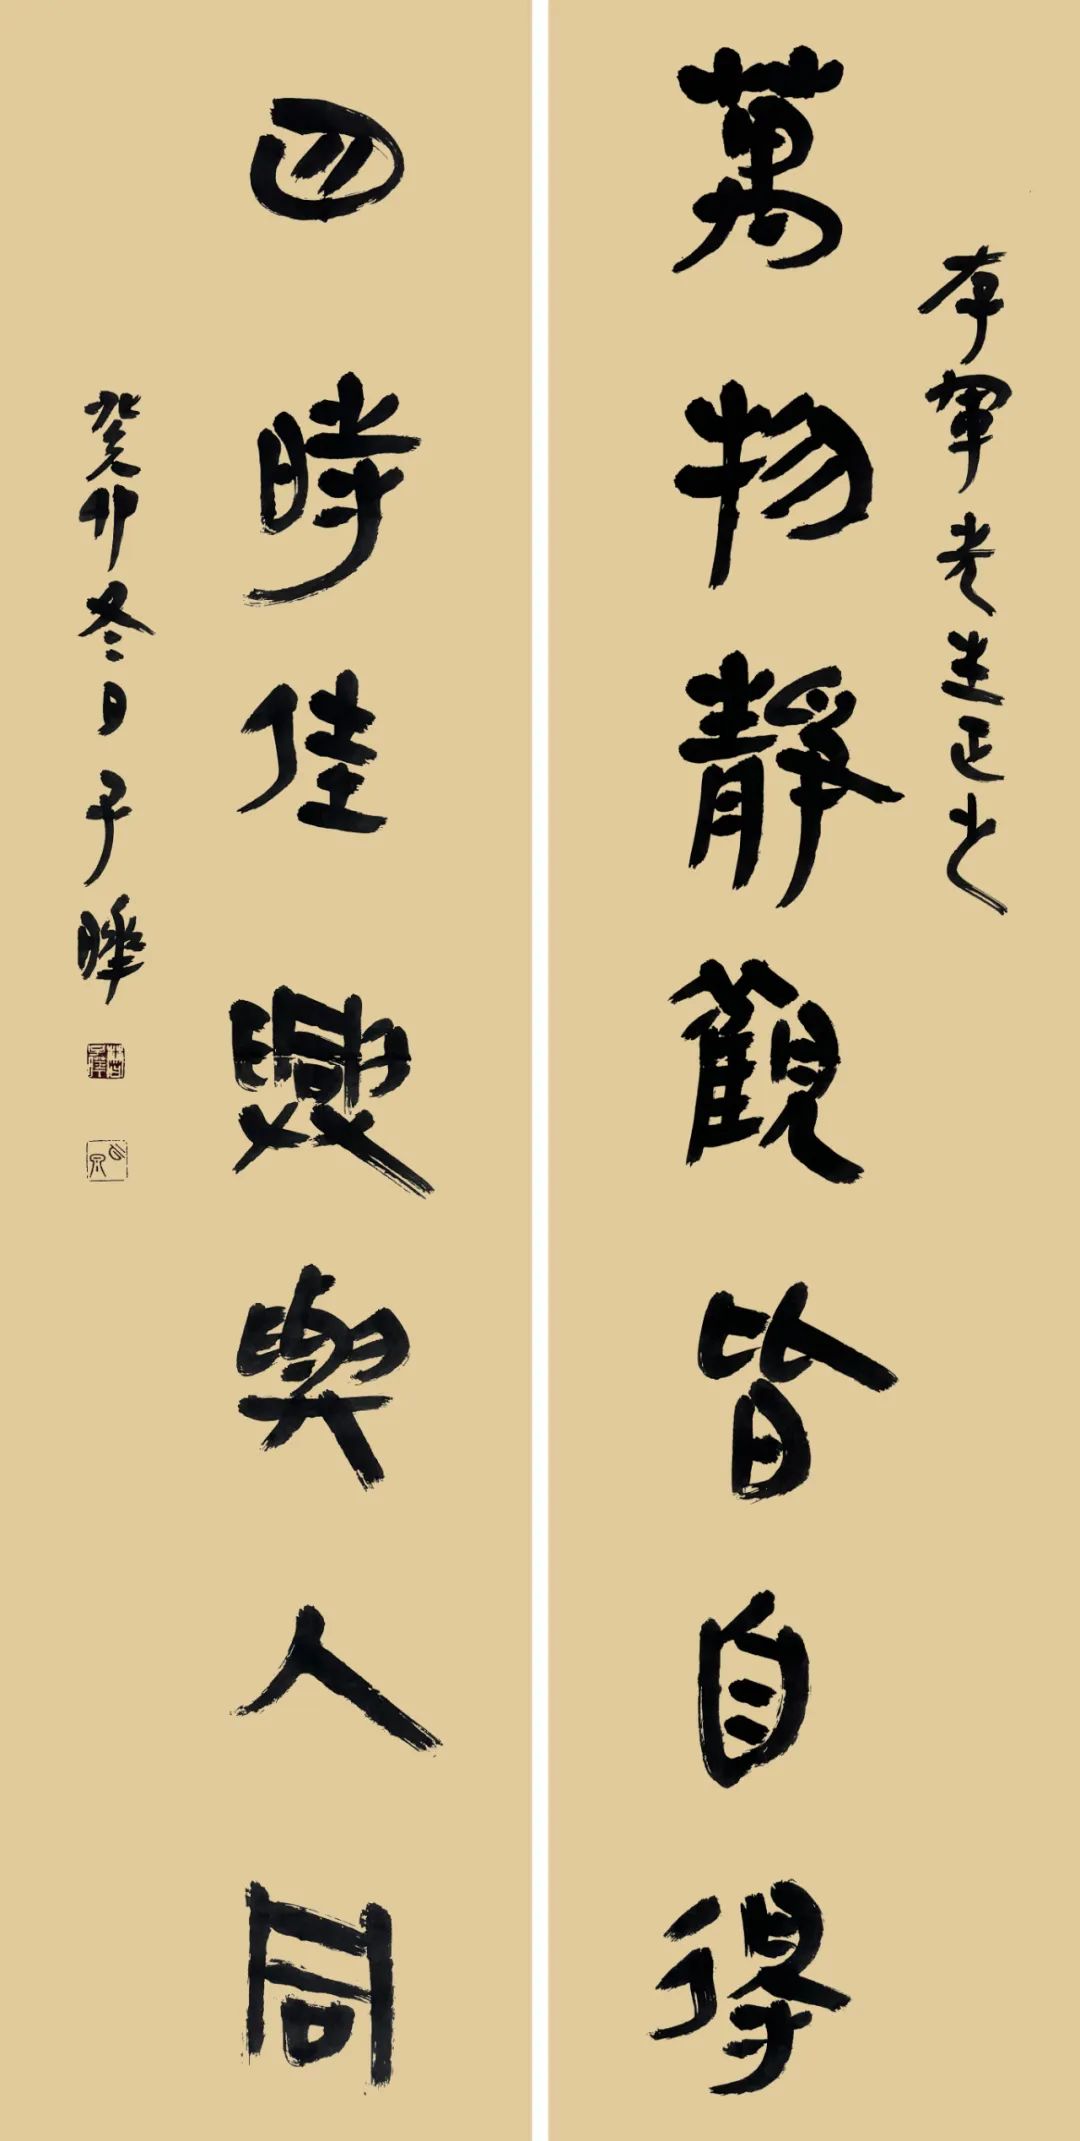 存軍先生正之
萬物靜觀皆自得
四時佳興與人同
癸卯冬日子曄